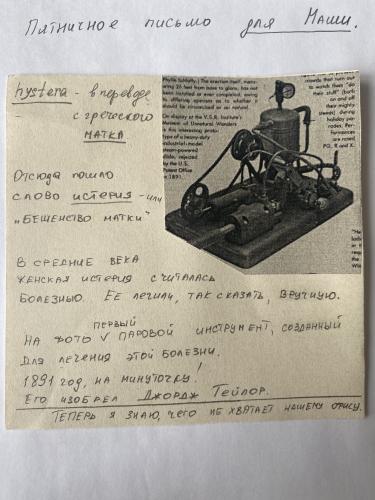 Пятничное письмо для Маши.
hystera - в переводе
- с греческого
МАТКА
Отсюда пошло
слово истерия - или
„БЕШЕНСТВО МАТКИ"
В СРЕДНИЕ ВЕКА
ЖЕНСКАЯ ИСТЕРИЯ СЧИТАЛАСЬ
БОЛЕЗНЬЮ. ЕЁ ЛЕЧИЛИ, ТАК СКАЗАТЬ, ВРУЧНУЮ.
НА ФОТО V ПЕРВЫЙ ПАРОВОЙ ИНСТРУМЕНТ, СОЗДАННЫЙ
Для ЛЕЧЕНИЯ ЭТОЙ БОЛЕЗНИ.
1891 ГОД, НА МИНУТОЧКУ!
Его ИЗОБРЕЛ ДЖОРДЖ ТЕЙЛОР.
ТЕПЕРЬ Я ЗНАЮ, ЧЕГО НЕ ХВАТАЕТ НАШЕМУ ОФИСУ.
Phyllis Schlafly.) The erection itself, meas-
uring 2½ feet from base to glans, has not
been installed or ever completed, owing
to differing opinions as to whether it
should be circumcised or au naturel.
On display at the V.S.R. Institute's
Museum of Unnatural Wonders
is this interesting proto-
type of a heavy-duty
industrial-model
steam-powered
dildo, rejected
by the U.S.
Patent Office
in 1891.
crowds that turn out
to watch them "do
their stuff" (both
on and off
their mighty
steeds) during
holiday pa-
rades. Per-
formances
are rated
PG, R and X.
"He